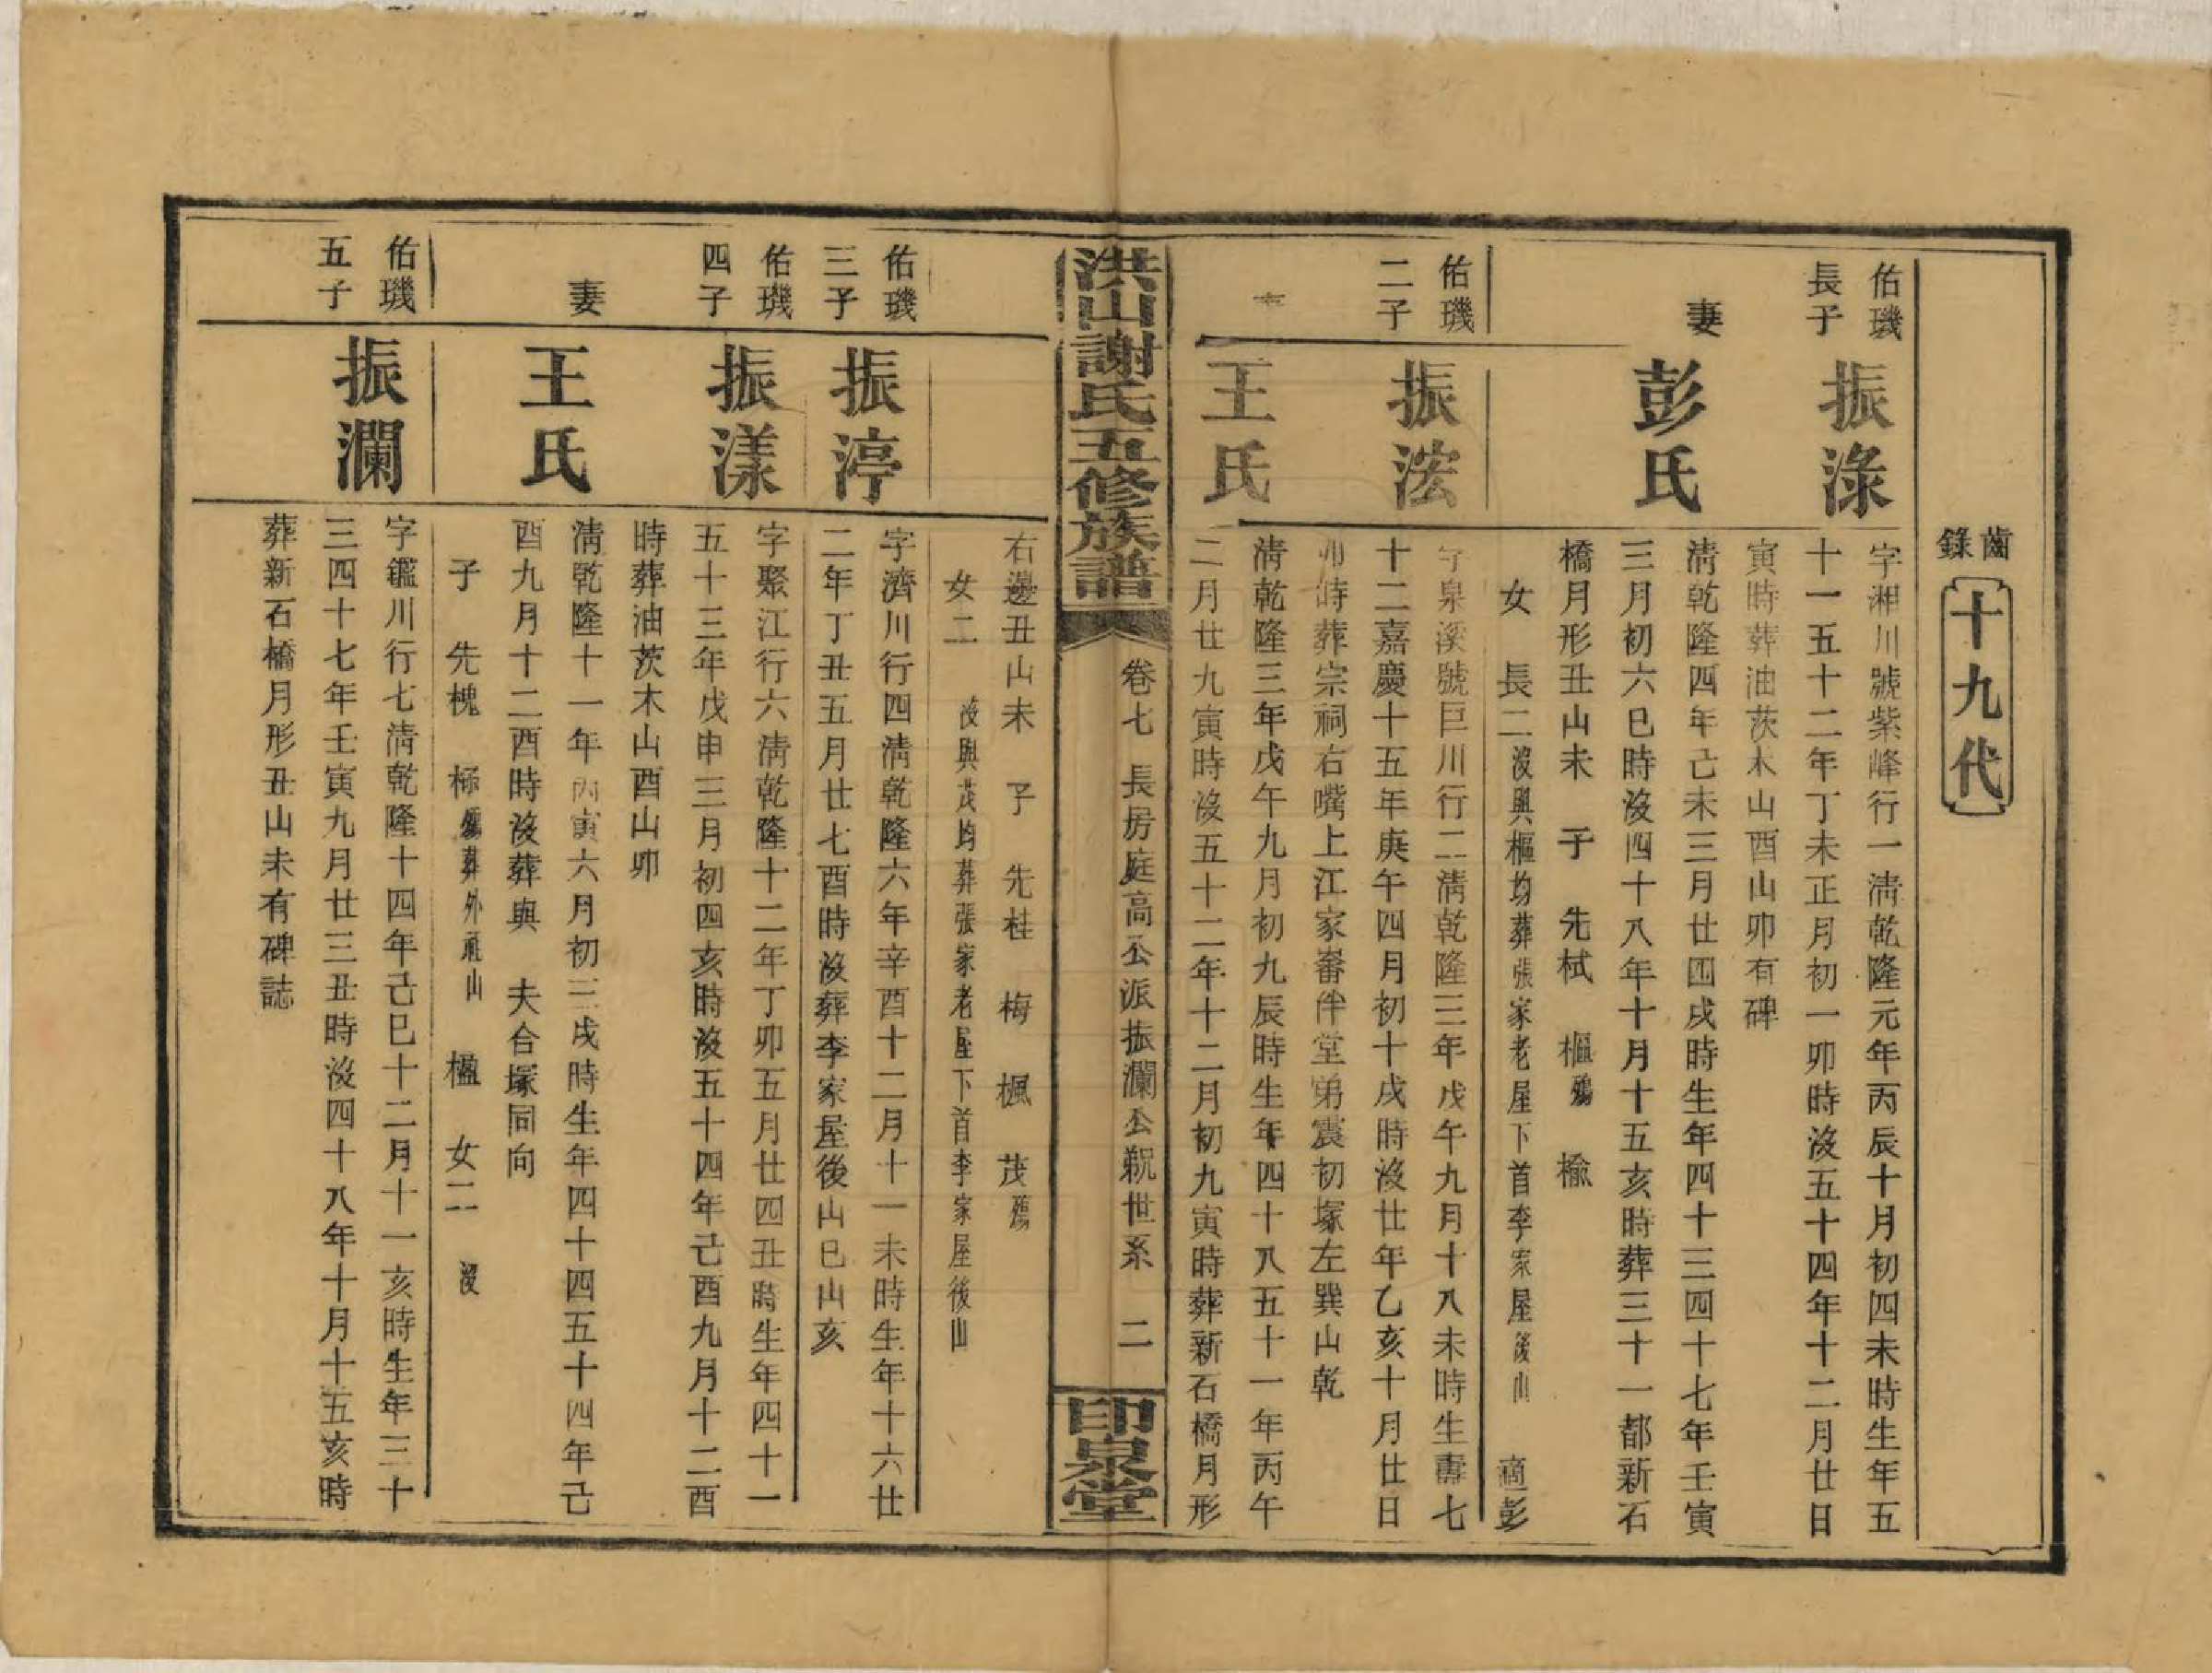 齒錄
十九代
佑璣
長子
振淥
字湘川號紫峰行一清乾隆元年丙辰十月初四未時生年五
十一五十二年丁未正月初一卯時沒五十四年十二月廿日
寅時葬油茨木山酉山卯有碑
妻
彭氏
清乾隆四年己未三月廿四戌時生年四十三四十七年壬寅
三月初六巳時沒四十八年十月十五亥時葬三十一都新石
橋月形丑山未 子 先栻 樞殤 楡
女 長二沒與樞均葬張家老屋下首李家屋後山 適彭
佑璣
二子
振浤
字泉溪號巨川行二清乾隆三年戊午九月十八未時生壽七
十二嘉慶十五年庚午四月初十戌時沒廿年乙亥十月廿日
卯時葬宗祠右嘴上江家畬伴堂弟震初塚左巽山乾
王氏
清乾隆三年戊午九月初九辰時生年四十八五十一年丙午
二月廿九寅時沒五十二年十二月初九寅時葬新石橋月形
洪山謝氏五修族譜
卷七 長房庭高公派振瀾公覩世系 二
印泉堂
右邊丑山未 子 先桂 梅 楓 茂殤
女二 沒與茂均葬張家老屋下首李家屋後山
佑璣
三子
振渟
字濟川行四清乾隆六年辛酉十二月十一未時生年十六廿
二年丁丑五月廿七酉時沒葬李家屋後山巳山亥
佑璣
四子
振漾
字聚江行六清乾隆十二年丁卯五月廿四丑時生年四十一
五十三年戊申三月初四亥時沒五十四年己酉九月十二酉
時葬油茨木山酉山卯
妻
王氏
清乾隆十一年丙寅六月初三戌時生年四十四五十四年己
酉九月十二酉時沒葬與 夫合塚同向
子 先槐 殤葬外 山 楹 女二 沒
佑璣
五子
振瀾
字鑑川行七清乾隆十四年己巳十二月十一亥時生年三十
三四十七年壬寅九月廿三丑時沒四十八年十月十五亥時
葬新石橋月形丑山未有碑誌